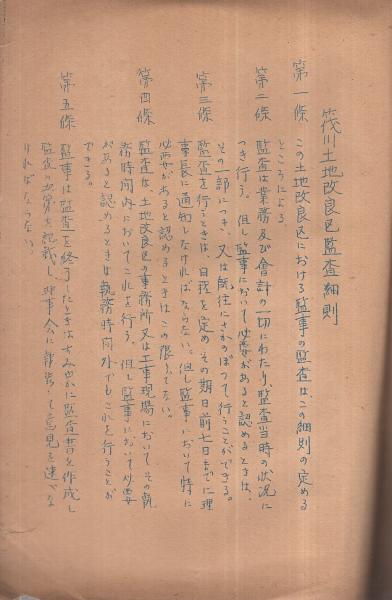 筏川土地改良区監査細則
第一條 この土地改良区における監事の監査は、この細則の定める
ところによる。
第二條 監査は業務及び會計の一切にわたり、監査当時の状況に
つき行う。但し監事において必要があると認めるときは、
その一部につき、又は既往にさかのぼって行うことができる。
第三條 監査を行うときは、日我を定めその期日前七日までに理
事長に通知しなければならない。但し監事において特に
必要があると認めるときはこの限りでない。
第四條 監査は、土地改良区の事務所又は工事現場においてその執
務時間内においてこれを行う。但し監事において必要
があると認めるときは執務時間外でもこれを行うことが
できる。
第五條 監事は監査を終了したときはすみやかに監査書を作成し
監査の を記載し、理事会に報告して意見を述べな
ければならない。